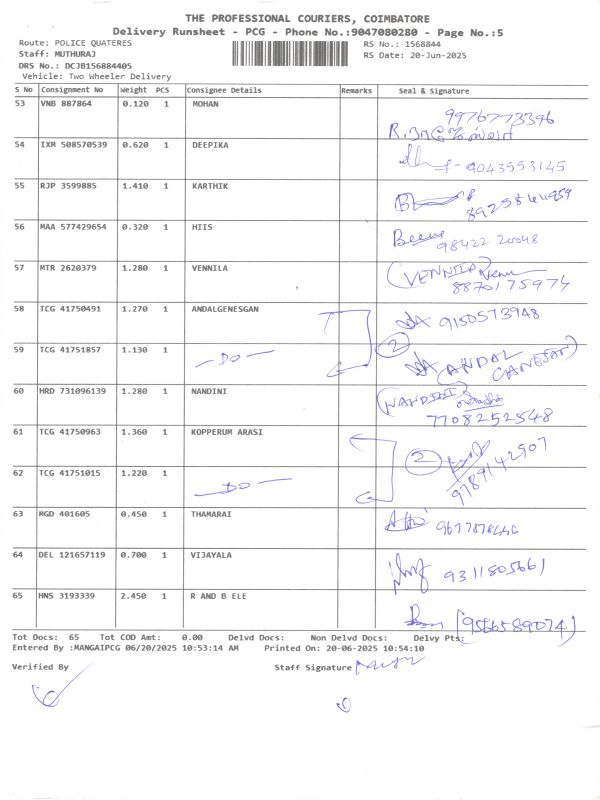 THE PROFESSIONAL COURIERS, COIMBATORE
Delivery Runsheet - PCG - Phone No.:9047080280 - Page No.:5
Route: POLICE QUATERES RS No.: 1568844
Staff: MUTHURAJ RS Date: 20-Jun-2025
DRS No.: DCJB156884405
Vehicle: Two Wheeler Delivery
S No Consignment No Weight PCS Consignee Details Remarks Seal & Signature
53 VNB 887864 0.120 1 MOHAN 9976773396
54 IXM 508570539 0.620 1 DEEPIKA 9043553145
55 RJP 3599885 1.410 1 KARTHIK
56 MAA 577429654 0.320 1 HIIS 98422 20048
57 MTR 2620379 1.280 1 VENNILA (VENNILA)
8870175974
58 TCG 41750491 1.270 1 ANDALGENESGAN 9150573948
59 TCG 41751857 1.130 1 -DO- 2 (ANDAL
GANESAN)
60 HRD 731096139 1.280 1 NANDINI (NANDINI)
7708252548
61 TCG 41750963 1.360 1 KOPPERUM ARASI 2 9789142907
62 TCG 41751015 1.220 1 -DO-
63 MGD 401605 0.450 1 THAMARAI
64 DEL 121657119 0.700 1 VIJAYALA 9311805661
65 HNS 3193339 2.450 1 R AND B ELE (9566589074)
Tot Docs: 65 Tot COD Amt: 0.00 Delvd Docs: Non Delvd Docs: Delvy Pts:
Entered By :MANGAIPCG 06/20/2025 10:53:14 AM Printed On: 20-06-2025 10:54:10
Verified By Staff Signature